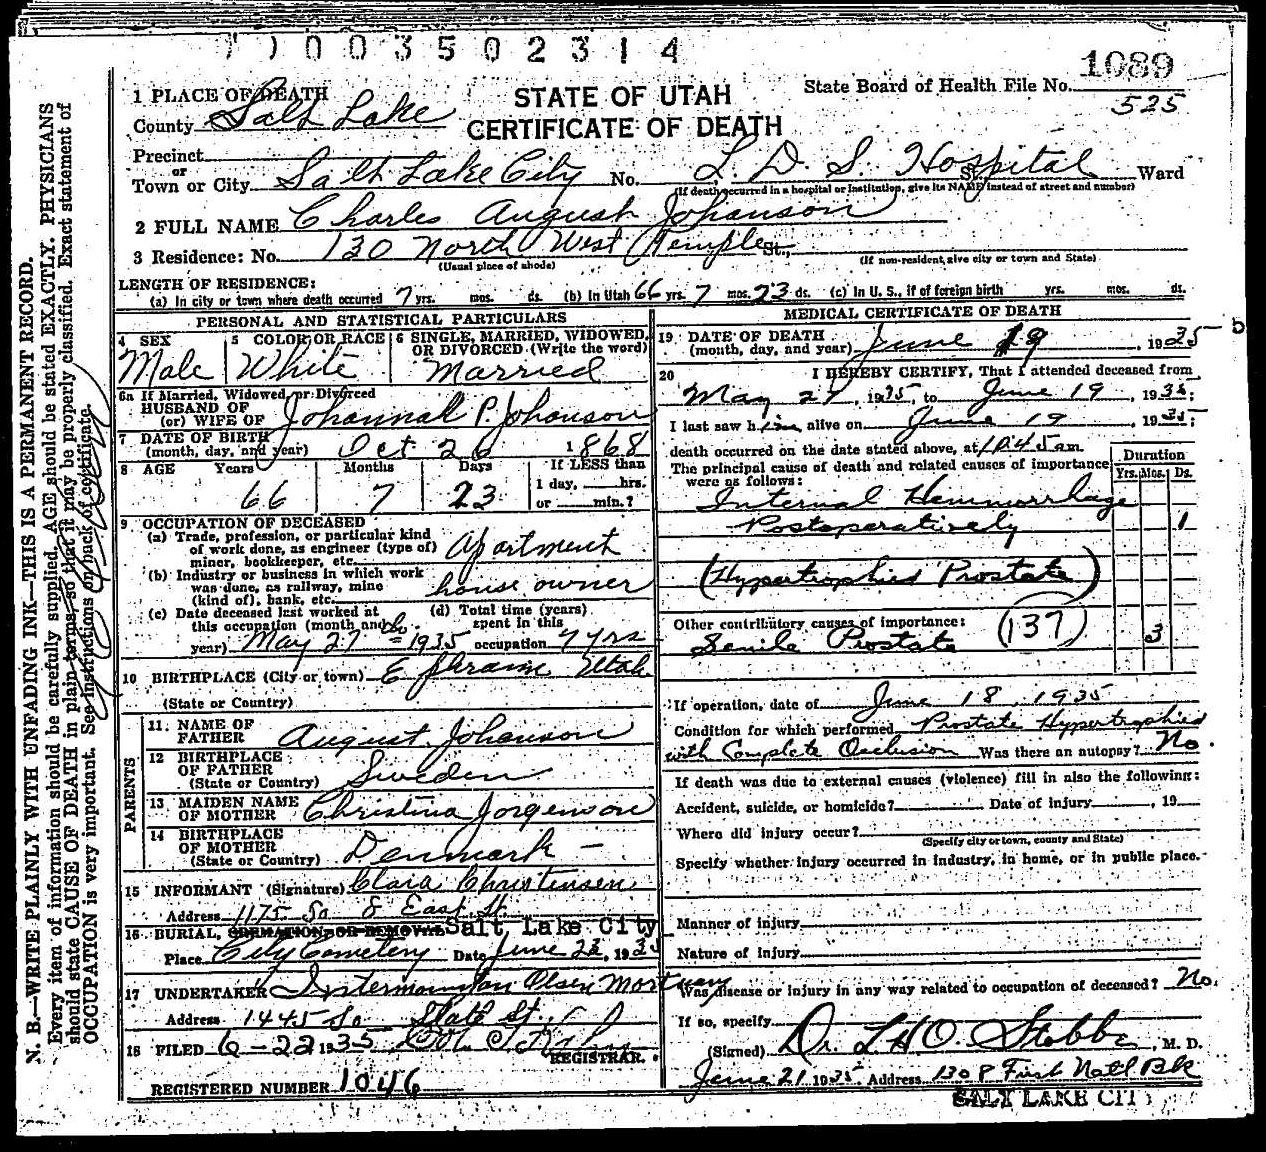 7 1 0 0 3 5 0 2 3 1 4
1089
State Board of Health File No.
525
1 PLACE OF DEATH
STATE OF UTAH
CERTIFICATE OF DEATH
County Salt Lake
Precinct
or
Town or City Salt Lake City No. L. D. S. Hospital St. Ward
(If death occurred in a hospital or institution, give its NAME instead of street and number)
2 FULL NAME Charles August Johanson
3 Residence: No. 130 North West Temple St.,
(Usual place of abode) (If non-resident, give city or town and State)
LENGTH OF RESIDENCE:
(a) In city or town where death occurred 7 yrs. mos. ds. (b) In Utah 66 yrs. 7 mos. 23 ds. (c) In U. S., if of foreign birth yrs. mos. ds.
PERSONAL AND STATISTICAL PARTICULARS
4 SEX Male
5 COLOR OR RACE White
6 SINGLE, MARRIED, WIDOWED, OR DIVORCED (Write the word) Married
6a If Married, Widowed, or Divorced
HUSBAND OF
(or) WIFE OF Johannah P. Johanson
7 DATE OF BIRTH
(month, day, and year) Oct 26 1868
8 AGE Years 66 Months 7 Days 23 If LESS than
1 day, hrs.
or min.?
9 OCCUPATION OF DECEASED
(a) Trade, profession, or particular kind
of work done, as engineer (type of)
miner, bookkeeper, etc. Apartment
(b) Industry or business in which work
was done, as railway, mine
(kind of), bank, etc. house owner
(c) Date deceased last worked at
this occupation (month and
year) May 27th 1935
(d) Total time (years)
spent in this
occupation 7 yrs
10 BIRTHPLACE (City or town) Ephraim Utah
(State or Country)
PARENTS
11. NAME OF
FATHER August Johanson
12 BIRTHPLACE
OF FATHER
(State or Country) Sweden
13 MAIDEN NAME
OF MOTHER Christina Jorgenson
14 BIRTHPLACE
OF MOTHER
(State or Country) Denmark -
15 INFORMANT (Signature) Clara Christensen
Address 1175 So 8 East St.
16 BURIAL, CREMATION OR REMOVAL Salt Lake City
Place City Cemetery Date June 22, 1935
17 UNDERTAKER Olsen Mortuary
Address 1445 So State St
18 FILED 6-22 1935
REGISTRAR.
REGISTERED NUMBER 1046
MEDICAL CERTIFICATE OF DEATH
19 DATE OF DEATH
(month, day, and year) June 19, 1935 b
20 I HEREBY CERTIFY, That I attended deceased from
May 27, 1935, to June 19, 1935;
I last saw him alive on June 19 1935;
death occurred on the date stated above, at 10 45 am
The principal cause of death and related causes of importance
were as follows:
Duration
Yrs. Mos. Ds.
Internal Hemmorrhage
Postoperatively 1
(Hypertrophied Prostate)
Other contributory causes of importance: (137)
Senile Prostate 3
If operation, date of June 18, 1935
Condition for which performed Prostate Hypertrophied
with Complete Occlusion Was there an autopsy? No.
If death was due to external causes (violence) fill in also the following:
Accident, suicide, or homicide? Date of injury , 19
Where did injury occur?
(Specify city or town, county and State)
Specify whether injury occurred in industry, in home, or in public place.
Manner of injury
Nature of injury
Was disease or injury in any way related to occupation of deceased? No.
If so, specify
(Signed) Dr. L H O. Stobbe, M. D.
June 21 1935. Address 1308 First Natl Bk
SALT LAKE CITY
N. B.—WRITE PLAINLY WITH UNFADING INK—THIS IS A PERMANENT RECORD.
Every item of information should be carefully supplied. AGE should be stated EXACTLY. PHYSICIANS
should state CAUSE OF DEATH in plain terms, so that it may be properly classified. Exact statement of
OCCUPATION is very important. See instructions on back of certificate.